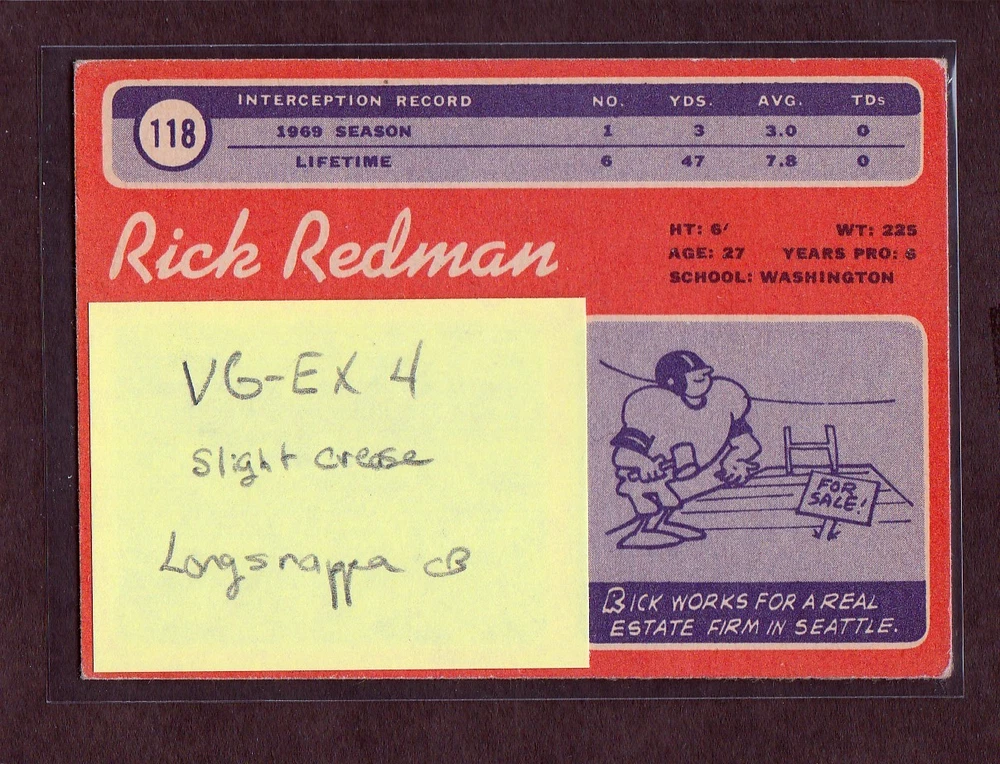 118
INTERCEPTION RECORD NO. YDS. AVG. TDs
1969 SEASON 1 3 3.0 0
LIFETIME 6 47 7.8 0
Rick Redman
HT: 6' WT: 225
AGE: 27 YEARS PRO:
SCHOOL: WASHINGTON
VG-EX 4
slight crease
Longsnappa cB
FOR
SALE!
RICK WORKS FOR A REAL
ESTATE FIRM IN SEATTLE.